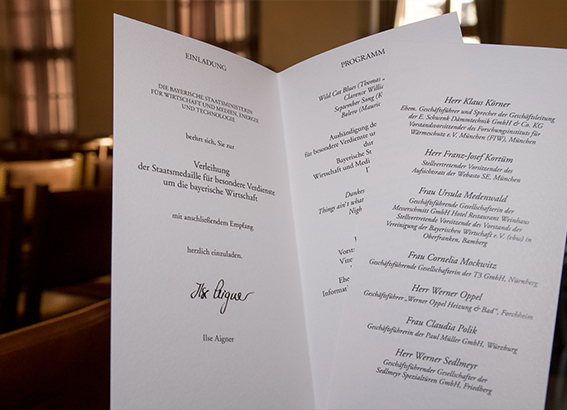 EINLADUNG
DIE BAYERISCHE STAATSMINISTERIN
FÜR WIRTSCHAFT UND MEDIEN, ENERGIE
UND TECHNOLOGIE
beehrt sich, Sie zur
Verleihung
der Staatsmedaille für besondere Verdienste
um die bayerische Wirtschaft
mit anschließendem Empfang
herzlich einzuladen.
Ilse Aigner
Ilse Aigner
PROGRAMM
Wild Cat Blues (Thomas
Clarence Willi
September Song (K
Bolero (Mauric
Aushändigung de
für besondere Verdienste
Bayerische St
Wirtschaft und Medi
Danke
Things ain't what
Nigh
Vorst
Vize
Ehe
Informat
Herr Klaus Körner
Ehem. Geschäftsführer und Sprecher der Geschäftsleitung
der E. Schwenk Dämmtechnik GmbH & Co. KG
Vorstandsvorsitzender des Forschungsinstituts für
Wärmeschutz e. V. München (FIW), München
Herr Franz-Josef Kortüm
Stellvertretender Vorsitzender des
Aufsichtsrats der Webasto SE, München
Frau Ursula Medenwald
Geschäftsführende Gesellschafterin der
Messerschmitt GmbH Hotel Restaurant Weinhaus
Stellvertretende Vorsitzende des Vorstands der
Vereinigung der Bayerischen Wirtschaft e. V. (vbw) in
Oberfranken, Bamberg
Frau Cornelia Mockwitz
Geschäftsführende Gesellschafterin der T3 GmbH, Nürnberg
Herr Werner Oppel
Geschäftsführer „Werner Oppel Heizung & Bad“, Forchheim
Frau Claudia Polik
Geschäftsführerin der Paul Müller GmbH, Würzburg
Herr Werner Sedlmeyr
Geschäftsführender Gesellschafter der
Sedlmeyr Spezialtüren GmbH, Friedberg